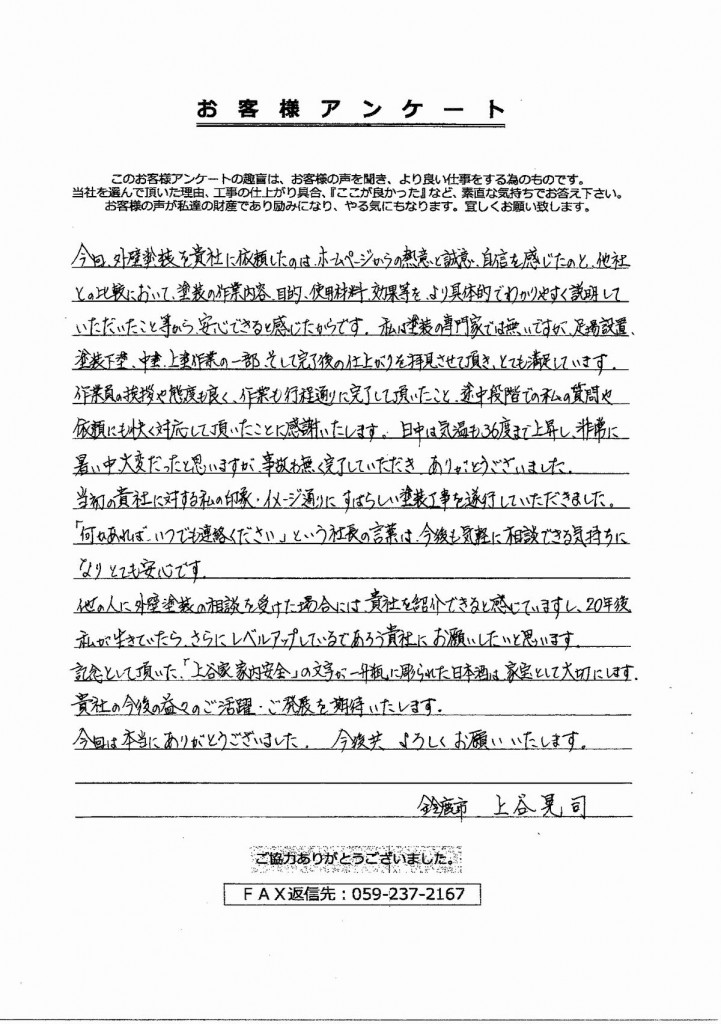 お客様アンケート
このお客様アンケートの趣旨は、お客様の声を聞き、より良い仕事をする為のものです。
当社を選んで頂いた理由、工事の仕上がり具合、『ここが良かった』など、素直な気持ちでお答え下さい。
お客様の声が私達の財産であり励みになり、やる気にもなります。宜しくお願い致します。
今回、外壁塗装を貴社に依頼したのは、ホームページからの熱意と誠意、自信を感じたのと、他社
との比較において、塗装の作業内容、目的、使用材料、効果等を、より具体的でわかりやすく説明して
いただいたこと等から、安心できると感じたからです。私は塗装の専門家では無いですが、足場設置、
塗装下塗、中塗、上塗作業の一部、そして完了後の仕上がりを拝見させて頂き、とても満足しています。
作業員の挨拶や態度も良く、作業も行程通りに完了して頂いたこと、途中段階での私の質問や
依頼にも快く対応して頂いたことに感謝いたします。日中は気温も36度まで上昇し、非常に
暑い中大変だったと思いますが、事故も無く完了していただき、ありがとうございました。
当初の貴社に対する私の印象・イメージ通りに、すばらしい塗装工事を遂行していただきました。
「何かあれば、いつでも連絡ください」という社長の言葉は、今後も気軽に相談できる気持ちに
なりとても安心です。
他の人に外壁塗装の相談を受けた場合には、貴社を紹介できると感じていますし、20年後
私が生きていたら、さらにレベルアップしているであろう貴社にお願いしたいと思います。
記念として頂いた、「上谷家家内安全」の文字が一升瓶に彫られた日本酒は、家宝として大切にします。
貴社の今後の益々のご活躍・ご発展を期待いたします。
今回は本当にありがとうございました。 今後共 よろしくお願いいたします。
鈴鹿市 上谷晃司
ご協力ありがとうございました。
FAX返信先：059-237-2167